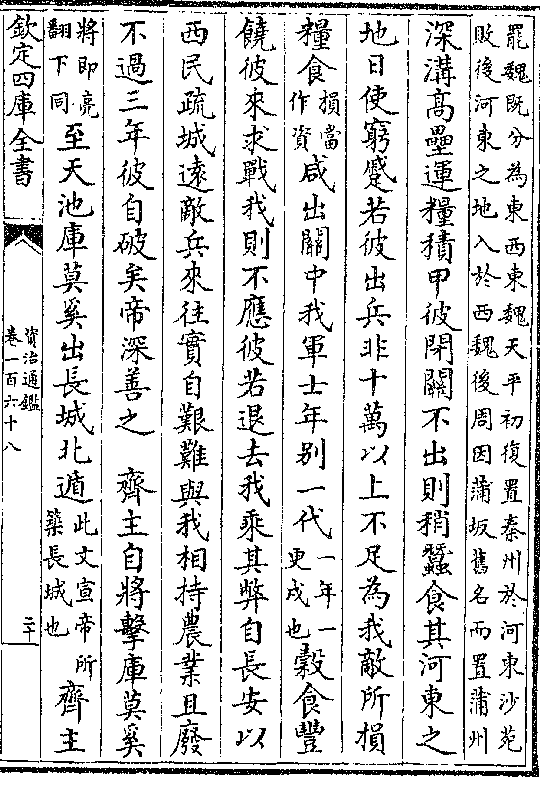 罷魏既分為東西東魏天平初復置秦州於河東沙苑
敗後河東之地入於西魏後周因蒲坂舊名而置蒲州
深溝髙壘運糧積甲彼閉關不出則稍蠶食其河東之
地日使窮蹙若彼出兵非十萬以上不足為我敵所損
糧食損當作資咸出關中我軍士年别一代一年一更戍也穀食豐
饒彼來求戰我則不應彼若退去我乘其弊自長安以
西民疏城逺敵兵來往實自艱難與我相持農業且廢
不過三年彼自破矣帝深善之　齊主自將擊庫莫奚
將即亮翻下同至天池庫莫奚出長城北遁此文宣帝所築長城也齊主
欽定四庫全書
資治通鑑
卷一百六十八
二十